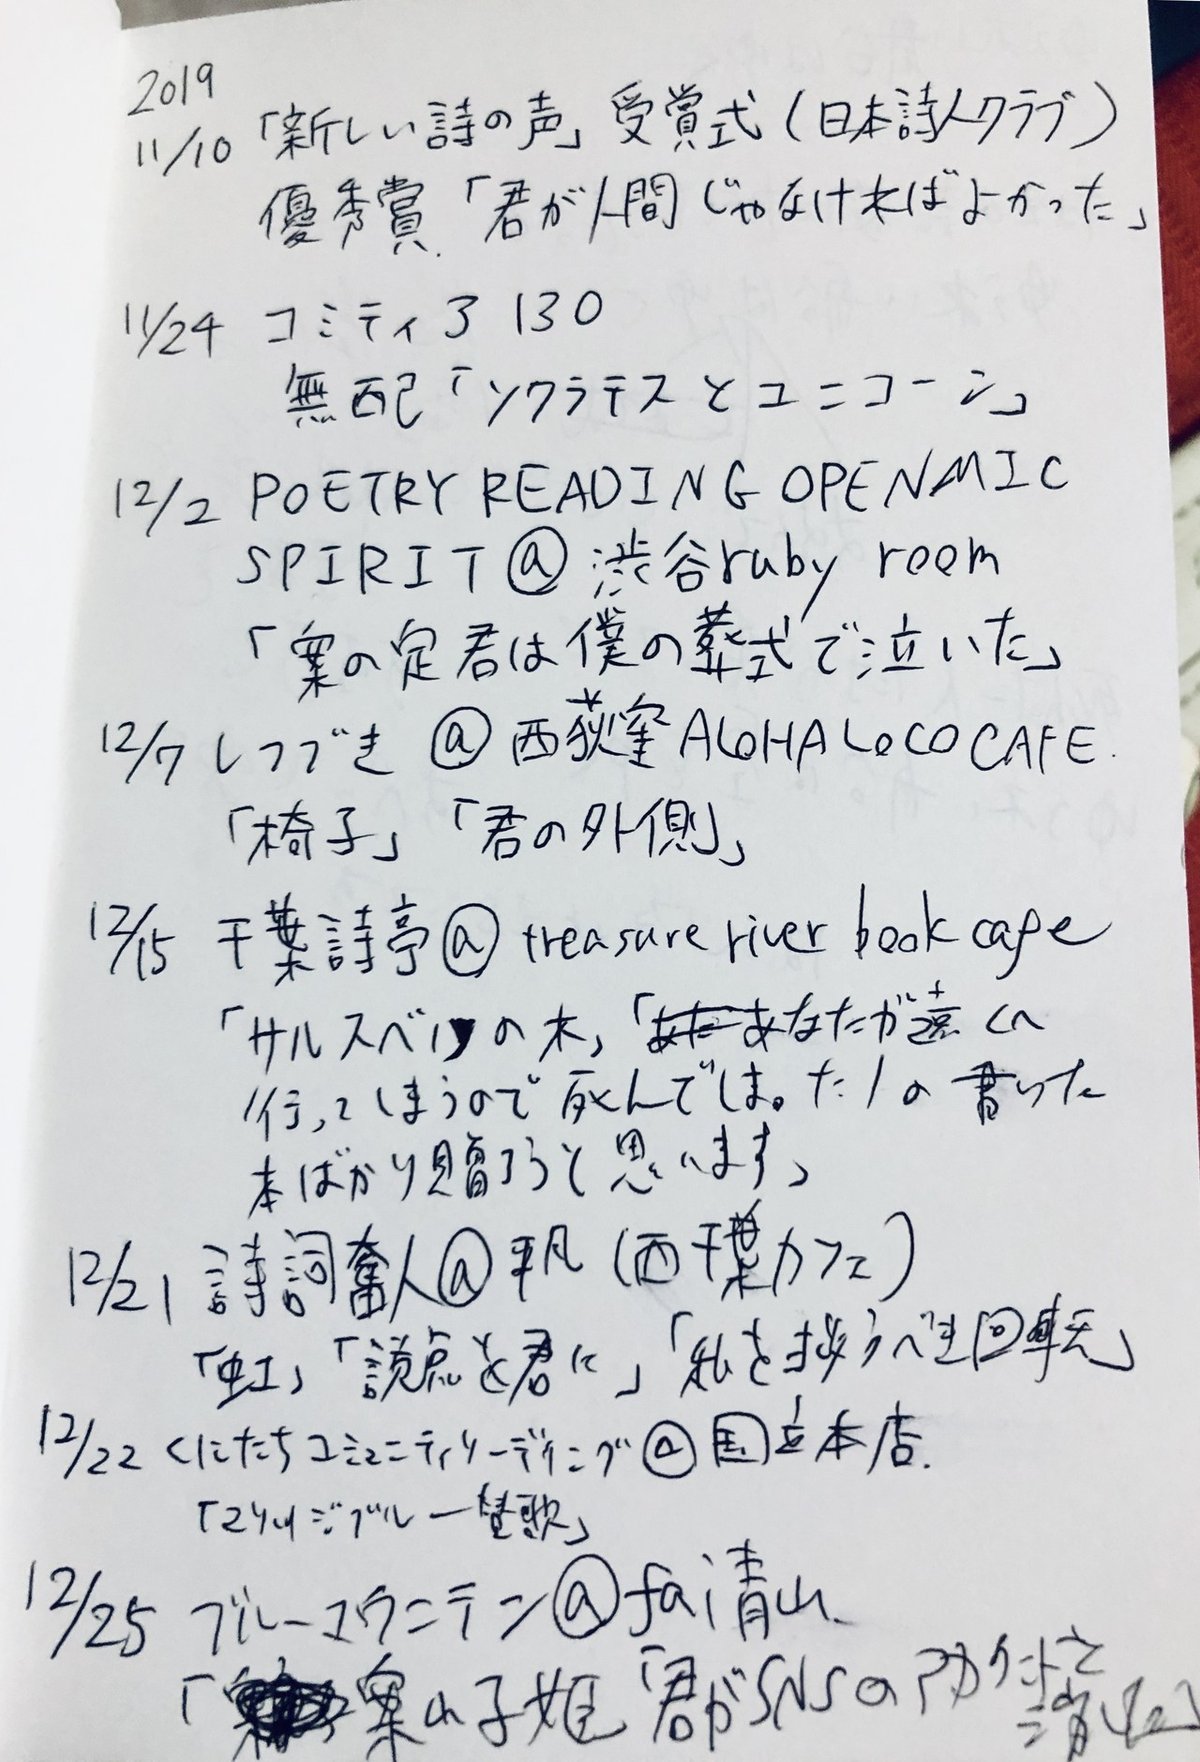 2019
11/10 「新しい詩の声」受賞式(日本詩人クラブ)
優秀賞.「君が人間じゃなければよかった」
11/24 コミティア 130
無配「ソクラテスとユニコーン」
12/2 POETRY READING OPENMIC
SPIRIT@渋谷ruby room
「案の定君は僕の葬式で泣いた」
12/7 しつづき @西荻窪ALOHA LOCO CAFE.
「椅子」「君の外側」
12/15 千葉詩亭@treasure river book cafe
「サルスベリの木」「あなたが遠くへ
行ってしまうので死んでは。た人の書いた
本ばかり贈ろうと思います」
12/21 詩詞奮人@平凡(西千葉カフェ)
「虹」「読点を君に」「私を拶うべき回転」
12/22 くにたちコミュニティリーディング@国立本店.
ジブルー賛歌」
12/25 ブルーマウンテン@fai青山
「案山子姫「君がSNSのアカウントを
消した」